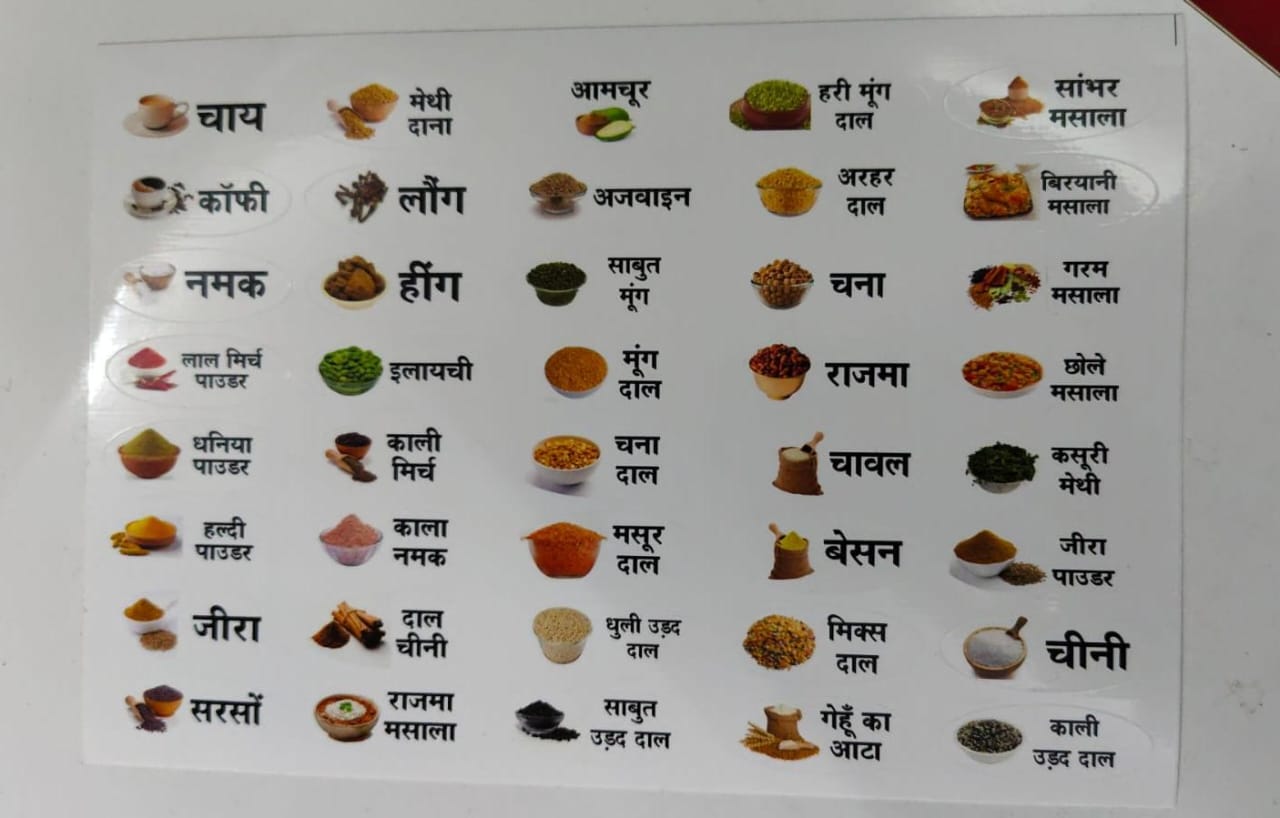 चाय
मेथी
दाना
आमचूर
हरी मूंग
दाल
सांभर
मसाला
कॉफी
लौंग
अजवाइन
अरहर
दाल
बिरयानी
मसाला
नमक
हींग
साबुत
मूंग
चना
गरम
मसाला
लाल मिर्च
पाउडर
इलायची
मूंग
दाल
राजमा
छोले
मसाला
धनिया
पाउडर
काली
मिर्च
चना
दाल
चावल
कसूरी
मेथी
हल्दी
पाउडर
काला
नमक
मसूर
दाल
बेसन
जीरा
पाउडर
जीरा
दाल
चीनी
धुली उड़द
दाल
मिक्स
दाल
चीनी
सरसों
राजमा
मसाला
साबुत
उड़द दाल
गेहूँ का
आटा
काली
उड़द दाल